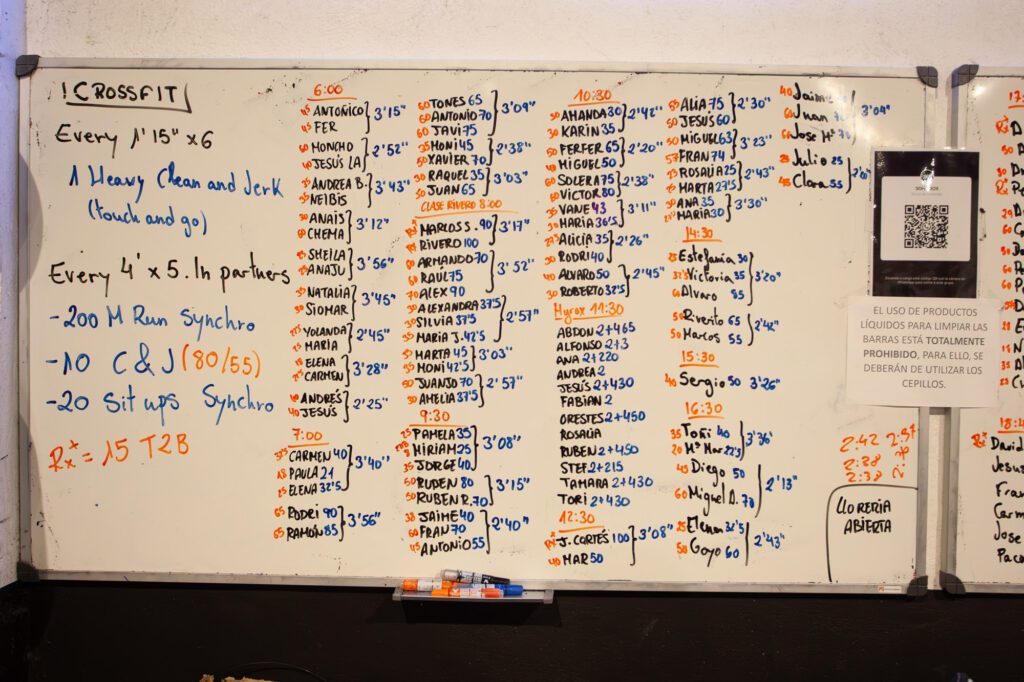 ! CROSSFIT
Every 1' 15" x 6
1 Heavy Clean and Jerk
(touch and go)
Every 4' x 5. In partners
-200 M Run Synchro
-10 C & J (80/55)
-20 Sit ups Synchro
Rx+ = 15 T2B
6:00
ANTOÑICO
FER
3'15"
60 MONCHO
40 JESÚS LA
2'52"
ANDREA B.
NEIBIS
3'43"
ANAIS
CHEMA
3'12"
SHEILA
ANAJU
3'56"
NATALIA
SIOMAR
3'45"
YOLANDA
MARIA
2'45"
ELENA
CARMEN
3'28"
ANDRÉS
JESÚS
2'25"
7:00
CARMEN 40
18 PAULA 21
ELENA 32'5
3'40"
65 RODRI 90
65 RAMÓN 85
3'56"
60 TONES 65
60 ANTONIO 70
60 JAVI 75
3'09"
35 MONI 45
50 XAVIER 70
2'38"
30 RAQUEL 35
50 JUAN 65
3'03"
CLASE RIVERO 8:00
RX MARCOS S. 90
RX RIVERO 100
3'17"
60 ARMANDO 70
60 RAÚL 75
70 ALEX 90
3'52"
30 ALEXANDRA 37'5
30 SILVIA 37'5
35 MARIA J. 42'5
2'57"
35 MARTA 45
35 MONI 42'5
3'03"
50 JUANJO 70
30 AMELIA 37'5
2'57"
9:30
PAMELA 35
MIRIAM 25
35 JORGE 40
3'08"
50 RUBEN 80
50 RUBEN R. 70
3'15"
38 JAIME 40
60 FRAN 70
45 ANTONIO 55
2'40"
10:30
50 AMANDA 30
30 KARIN 35
2'42"
50 FERFER 65
40 MIGUEL 50
2'20"
60 SOLERA 75
60 VICTOR 80
2'38"
35 VANE 43
30 MARIA 36'5
3'11"
ALICIA 35
30 RODRI 40
2'26"
40 ALVARO 50
30 ROBERTO 32'5
2'45"
Hyrox 11:30
ABDON 2+465
ALFONSO 2+3
ANA 2+220
ANDREA 2
JESÚS 2+430
FABIAN 2
ORESTES 2+450
ROSALÍA
RUBEN 2+450
STEF 2+215
TAMARA 2+430
TORI 2+430
12:30
RX J. CORTÉS 100
40 MAR 50
3'08"
55 ALIA 75
50 JESÚS 60
2'30"
50 MIGUEL 63
57 FRAN 74
3'23"
ROSALIA 25
MARTA 27'5
2'43"
30 ANA 35
MARIA 30
3'30"
14:30
25 Estefania 30
Victoria 35
60 Alvaro 85
3'20"
50 Riverito 65
50 Marcos 55
2'42"
15:30
40 Sergio 50 3'26"
16:30
35 Toñi 40
20 Mª Mar 22'5
3'36"
45 Diego 50
60 Miguel D. 70
2'13"
25 Elena 32'5
50 Goyo 60
2'43"
40 Jaime
60 Juan
60 Jose Mª 70
3'04"
Julio 25
45 Clara 55
EL USO DE PRODUCTOS
LÍQUIDOS PARA LIMPIAR LAS
BARRAS ESTÁ TOTALMENTE
PROHIBIDO, PARA ELLO, SE
DEBERÁN DE UTILIZAR LOS
CEPILLOS.
2:42 2:37
2:38
2:38
LLORERIA
ABIERTA
17:
18:
David
Jesus
Fran
Carm
Jose
Paco